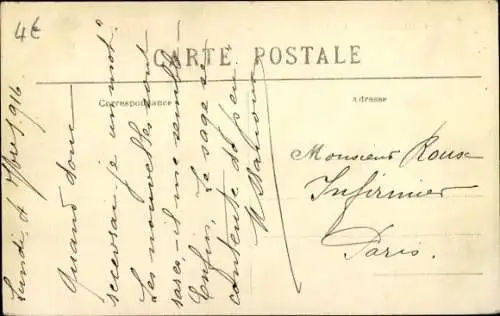 4€
CARTE POSTALE
Correspondance
Adresse
Lundi, 4 7bre 1916
Quand donc
recevrai-je un mot?
Les nouvelles sont
rares, il me semble
Enfin, le sage se
contente de peu.
Monsieur Roux
Infirmier
Paris.